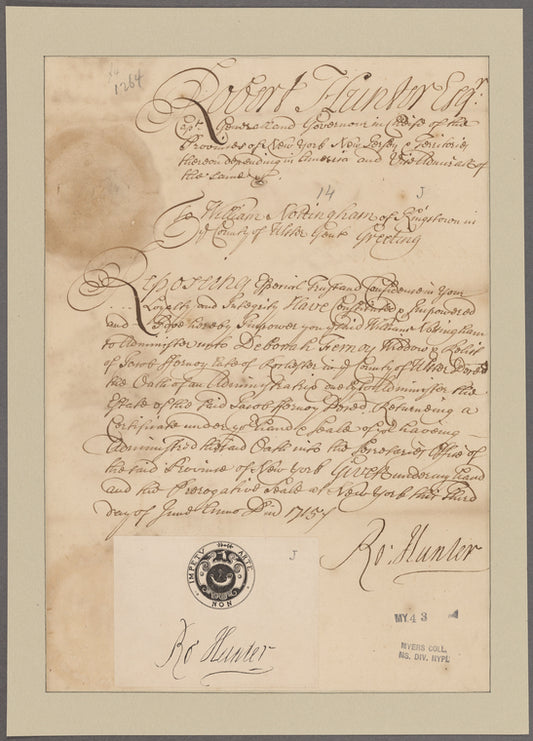 1264
Robert Hunter Esqr.
Capt. Generall and Governour in Cheife of the
Provinces of New York New Jersey & Territories
thereon depending in America and Vice Admirall of
the same &c.
14 J
To William Nottingham of Kingstown in
ye County of Ulster Gent. Greeting
Reposeing Especial Trust and Confidence in Your
Loyalty and Integrity Have Constituted & Impowered
and I Doe hereby Impower you ye said William Nottingham
to Administer unto Deborah Fernoy Widdow & Relict
of Jacob ffernoy late of Rochester in ye County of Ulster Deced
the Oath of an Administratrix to Administer the
Estate of the said Jacob ffernoy Deced Returning a
Certificate under yor hand & Seale of yor haveing
Administred the said Oath into the Secretarys Office of
the said Province of New York Given under my hand
and the Prerogative Seale at New York this Third
day of June Anno Dni 1715
Ro: Hunter
J
IMPETU ARTE NON
Ro Hunter
MY 43
MYERS COLL.
MS. DIV. NYPL